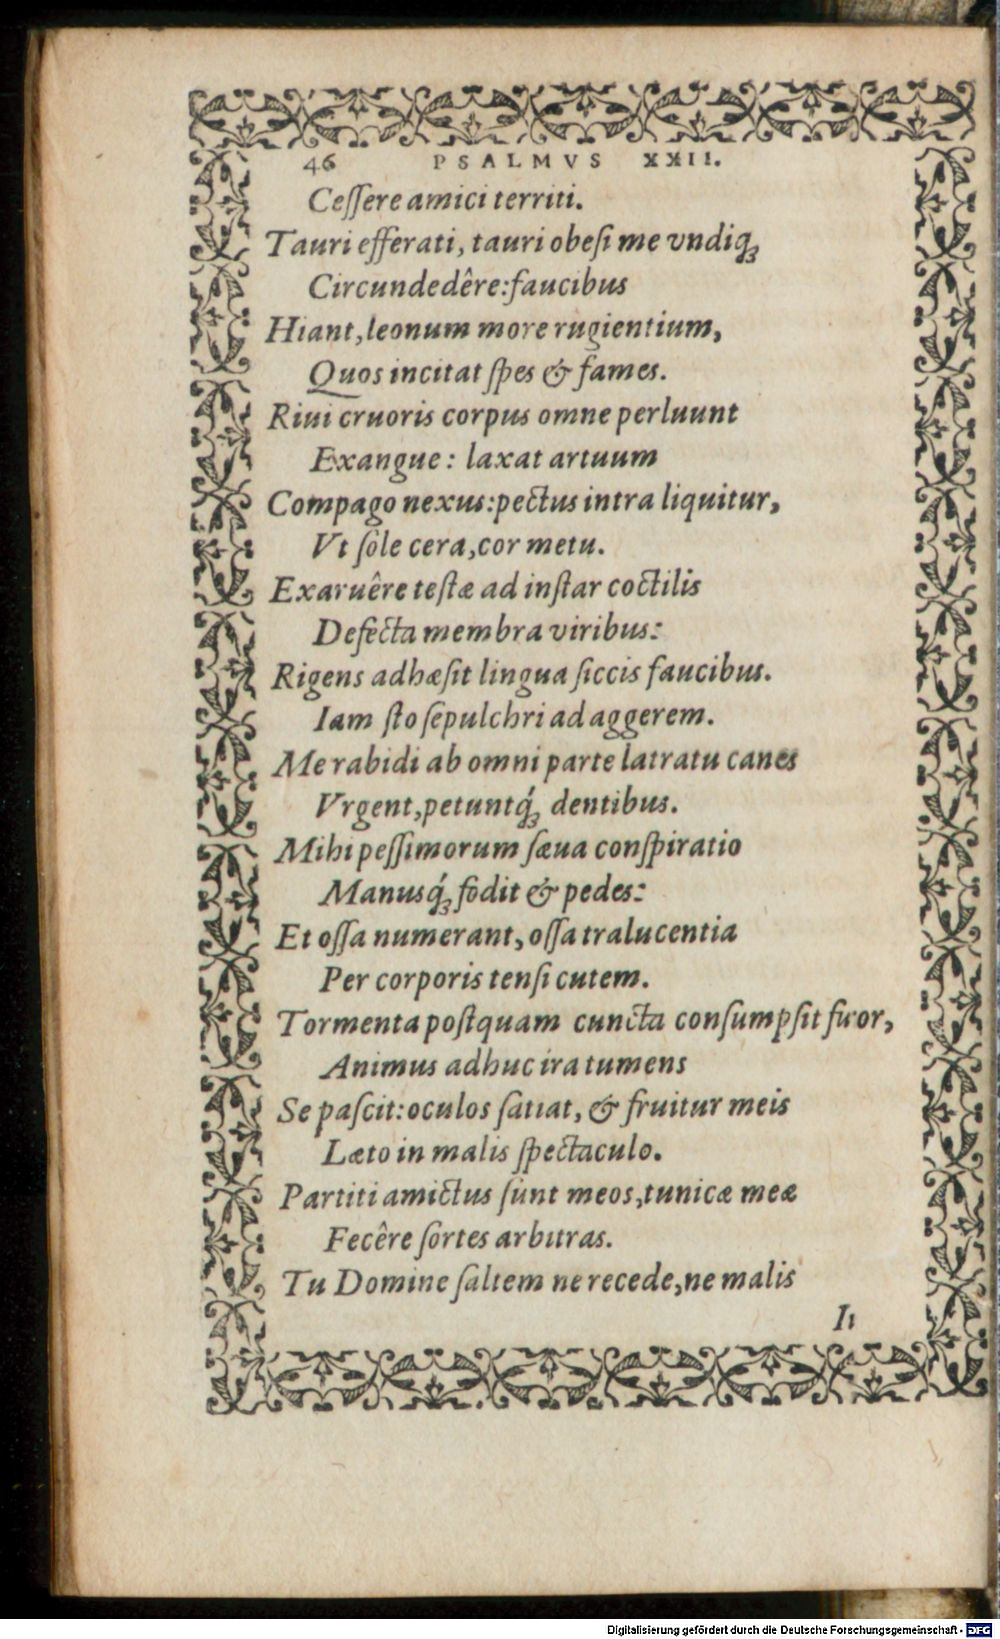 46 PSALMVS XXII.
Ceſſere amici territi.
Tauri efferati, tauri obeſi me vndiqꝫ
Circundedêre: faucibus
Hiant, leonum more rugientium,
Quos incitat ſpes & fames.
Riui cruoris corpus omne perluunt
Exangue: laxat artuum
Compago nexus: pectus intra liquitur,
Vt ſole cera, cor metu.
Exaruêre teſtæ ad inſtar coctilis
Defecta membra viribus:
Rigens adhæſit lingua ſiccis faucibus.
Iam ſto ſepulchri ad aggerem.
Me rabidi ab omni parte latratu canes
Vrgent, petuntq́ꝫ dentibus.
Mihi peſſimorum ſæua conſpiratio
Manusq́ꝫ fodit & pedes:
Et oſſa numerant, oſſa tralucentia
Per corporis tenſi cutem.
Tormenta poſtquam cuncta conſumpſit furor,
Animus adhuc ira tumens
Se paſcit: oculos ſatiat, & fruitur meis
Læto in malis ſpectaculo.
Partiti amictus ſunt meos, tunicæ meæ
Fecêre ſortes arbitras.
Tu Domine ſaltem ne recede, ne malis
Digitalisierung gefördert durch die Deutsche Forschungsgemeinschaft - DFG